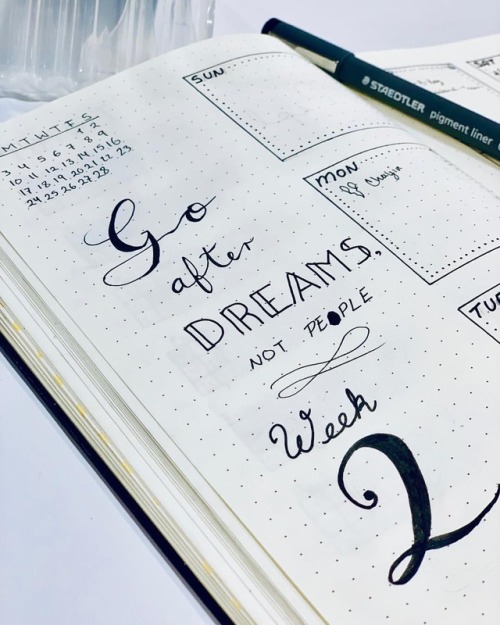 M T W T F S
1 2
3 4 5 6 7 8 9
10 11 12 13 14 15 16
17 18 19 20 21 22 23
24 25 26 27 28
Go
after
DREAMS,
NOT PEOPLE
Week
2
SUN
MON
TUE
SAT
STAEDTLER pigment liner